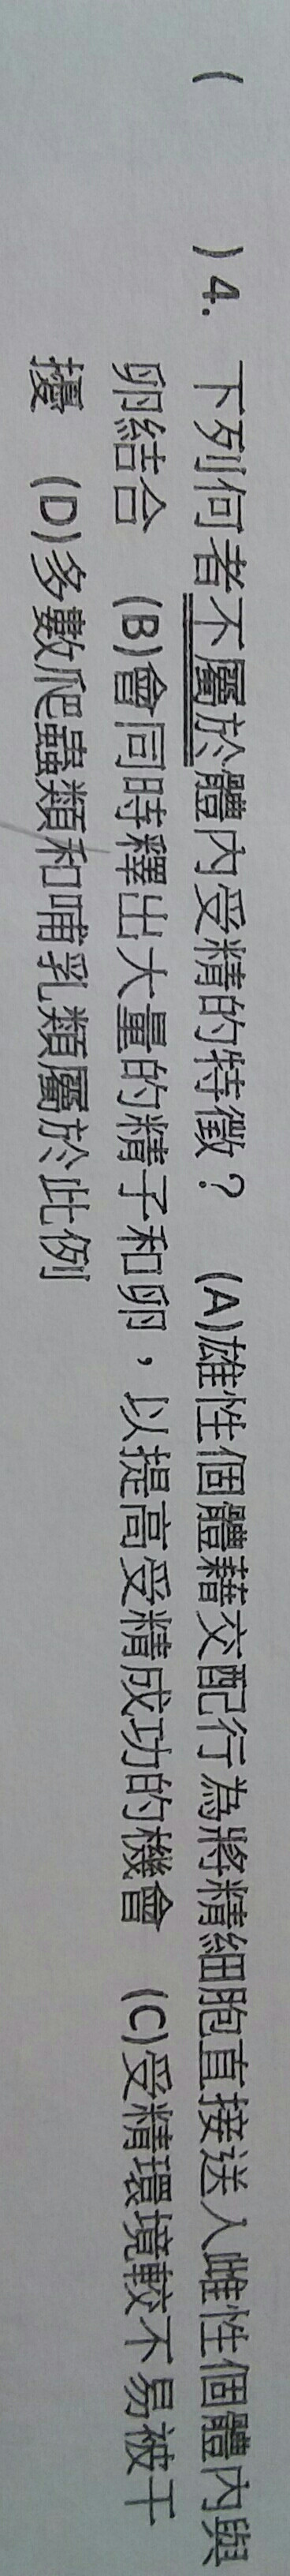 (　　) 4. 下列何者不屬於體內受精的特徵？ (A)雄性個體藉交配行為將精細胞直接送入雌性個體內與
卵結合 (B)會同時釋出大量的精子和卵，以提高受精成功的機會 (C)受精環境較不易被干
擾 (D)多數爬蟲類和哺乳類屬於此例